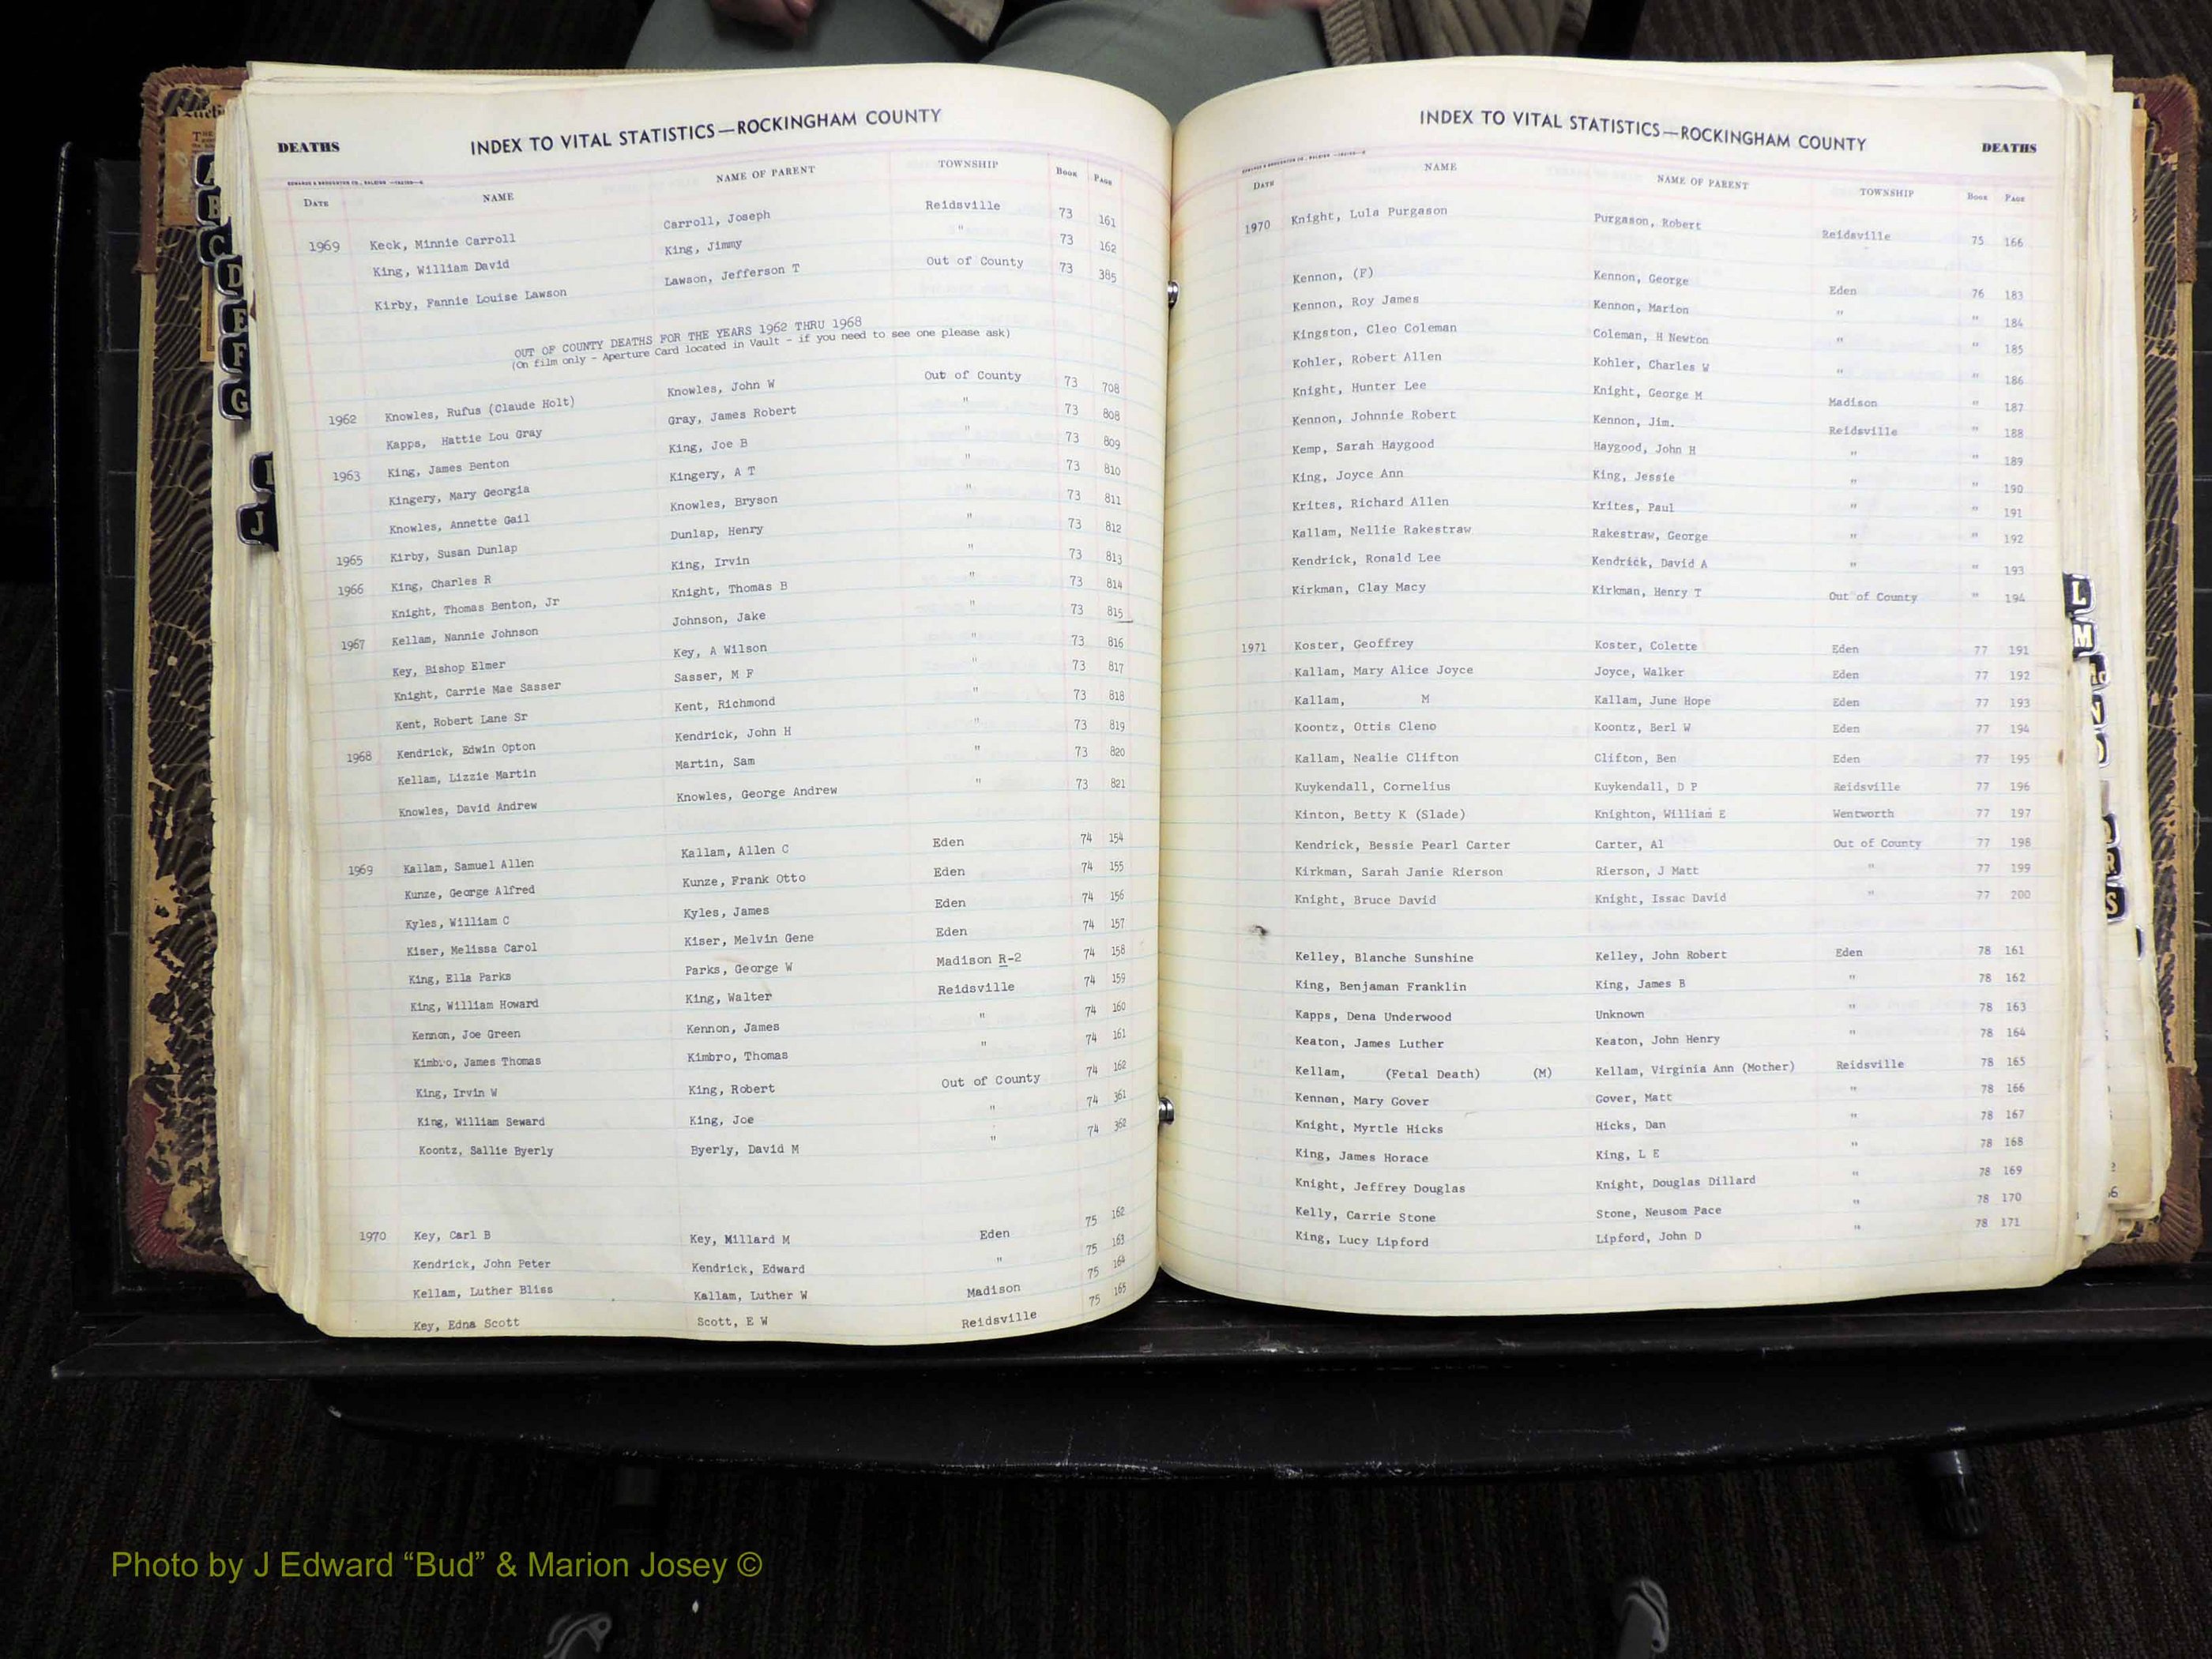 DEATHS
INDEX TO VITAL STATISTICS—ROCKINGHAM COUNTY
EDWARDS & BROUGHTON CO., RALEIGH
DATE NAME NAME OF PARENT TOWNSHIP BOOK PAGE
1969 Keck, Minnie Carroll Carroll, Joseph Reidsville 73 161
King, William David King, Jimmy " 73 162
Kirby, Fannie Louise Lawson Lawson, Jefferson T Out of County 73 385
OUT OF COUNTY DEATHS FOR THE YEARS 1962 THRU 1968
(On film only - Aperture Card located in Vault - if you need to see one please ask)
1962 Knowles, Rufus (Claude Holt) Knowles, John W Out of County 73 708
Kapps, Hattie Lou Gray Gray, James Robert " 73 808
1963 King, James Benton King, Joe B " 73 809
Kingery, Mary Georgia Kingery, A T " 73 810
Knowles, Annette Gail Knowles, Bryson " 73 811
1965 Kirby, Susan Dunlap Dunlap, Henry " 73 812
1966 King, Charles R King, Irvin " 73 813
Knight, Thomas Benton, Jr Knight, Thomas B " 73 814
1967 Kellam, Nannie Johnson Johnson, Jake " 73 815
Key, Bishop Elmer Key, A Wilson " 73 816
Knight, Carrie Mae Sasser Sasser, M F " 73 817
Kent, Robert Lane Sr Kent, Richmond " 73 818
1968 Kendrick, Edwin Opton Kendrick, John H " 73 819
Kellam, Lizzie Martin Martin, Sam " 73 820
Knowles, David Andrew Knowles, George Andrew " 73 821
1969 Kallam, Samuel Allen Kallam, Allen C Eden 74 154
Kunze, George Alfred Kunze, Frank Otto Eden 74 155
Kyles, William C Kyles, James Eden 74 156
Kiser, Melissa Carol Kiser, Melvin Gene Eden 74 157
King, Ella Parks Parks, George W Madison R-2 74 158
King, William Howard King, Walter Reidsville 74 159
Kennon, Joe Green Kennon, James " 74 160
Kimbro, James Thomas Kimbro, Thomas " 74 161
King, Irvin W King, Robert Out of County 74 162
King, William Seward King, Joe " 74 361
Koontz, Sallie Byerly Byerly, David M " 74 362
1970 Key, Carl B Key, Millard M Eden 75 162
Kendrick, John Peter Kendrick, Edward " 75 163
Kellam, Luther Bliss Kallam, Luther W Madison 75 164
Key, Edna Scott Scott, E W Reidsville 75 165
INDEX TO VITAL STATISTICS—ROCKINGHAM COUNTY
DEATHS
EDWARDS & BROUGHTON CO., RALEIGH
DATE NAME NAME OF PARENT TOWNSHIP BOOK PAGE
1970 Knight, Lula Purgason Purgason, Robert Reidsville 75 166
Kennon, (F) Kennon, George Eden 76 183
Kennon, Roy James Kennon, Marion " " 184
Kingston, Cleo Coleman Coleman, H Newton " " 185
Kohler, Robert Allen Kohler, Charles W " " 186
Knight, Hunter Lee Knight, George M Madison " 187
Kennon, Johnnie Robert Kennon, Jim. Reidsville " 188
Kemp, Sarah Haygood Haygood, John H " " 189
King, Joyce Ann King, Jessie " " 190
Krites, Richard Allen Krites, Paul " " 191
Kallam, Nellie Rakestraw Rakestraw, George " " 192
Kendrick, Ronald Lee Kendrick, David A " " 193
Kirkman, Clay Macy Kirkman, Henry T Out of County " 194
1971 Koster, Geoffrey Koster, Colette Eden 77 191
Kallam, Mary Alice Joyce Joyce, Walker Eden 77 192
Kallam, M Kallam, June Hope Eden 77 193
Koontz, Ottis Cleno Koontz, Berl W Eden 77 194
Kallam, Nealie Clifton Clifton, Ben Eden 77 195
Kuykendall, Cornelius Kuykendall, D P Reidsville 77 196
Kinton, Betty K (Slade) Knighton, William E Wentworth 77 197
Kendrick, Bessie Pearl Carter Carter, Al Out of County 77 198
Kirkman, Sarah Janie Rierson Rierson, J Matt " 77 199
Knight, Bruce David Knight, Issac David " 77 200
Kelley, Blanche Sunshine Kelley, John Robert Eden 78 161
King, Benjaman Franklin King, James B " 78 162
Kapps, Dena Underwood Unknown " 78 163
Keaton, James Luther Keaton, John Henry " 78 164
Kellam, (Fetal Death) (M) Kellam, Virginia Ann (Mother) Reidsville 78 165
Kennon, Mary Gover Gover, Matt " 78 166
Knight, Myrtle Hicks Hicks, Dan " 78 167
King, James Horace King, L E " 78 168
Knight, Jeffrey Douglas Knight, Douglas Dillard " 78 169
Kelly, Carrie Stone Stone, Neusom Pace " 78 170
King, Lucy Lipford Lipford, John D " 78 171
A
B
C
D
E
F
G
J
L
M
N
R
S
Photo by J Edward “Bud” & Marion Josey ©